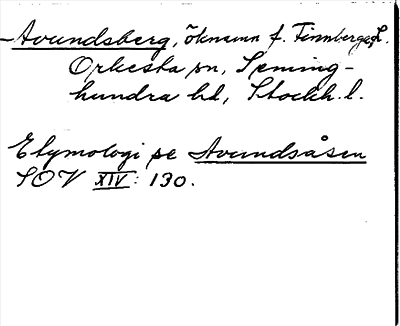 - Avundsberg, öknamn f. Finnberga, L.
Orkesta sn, Seming-
hundra hd, Stockh. l.
Etymologi se Avundsåsen
SOV XIV: 130.